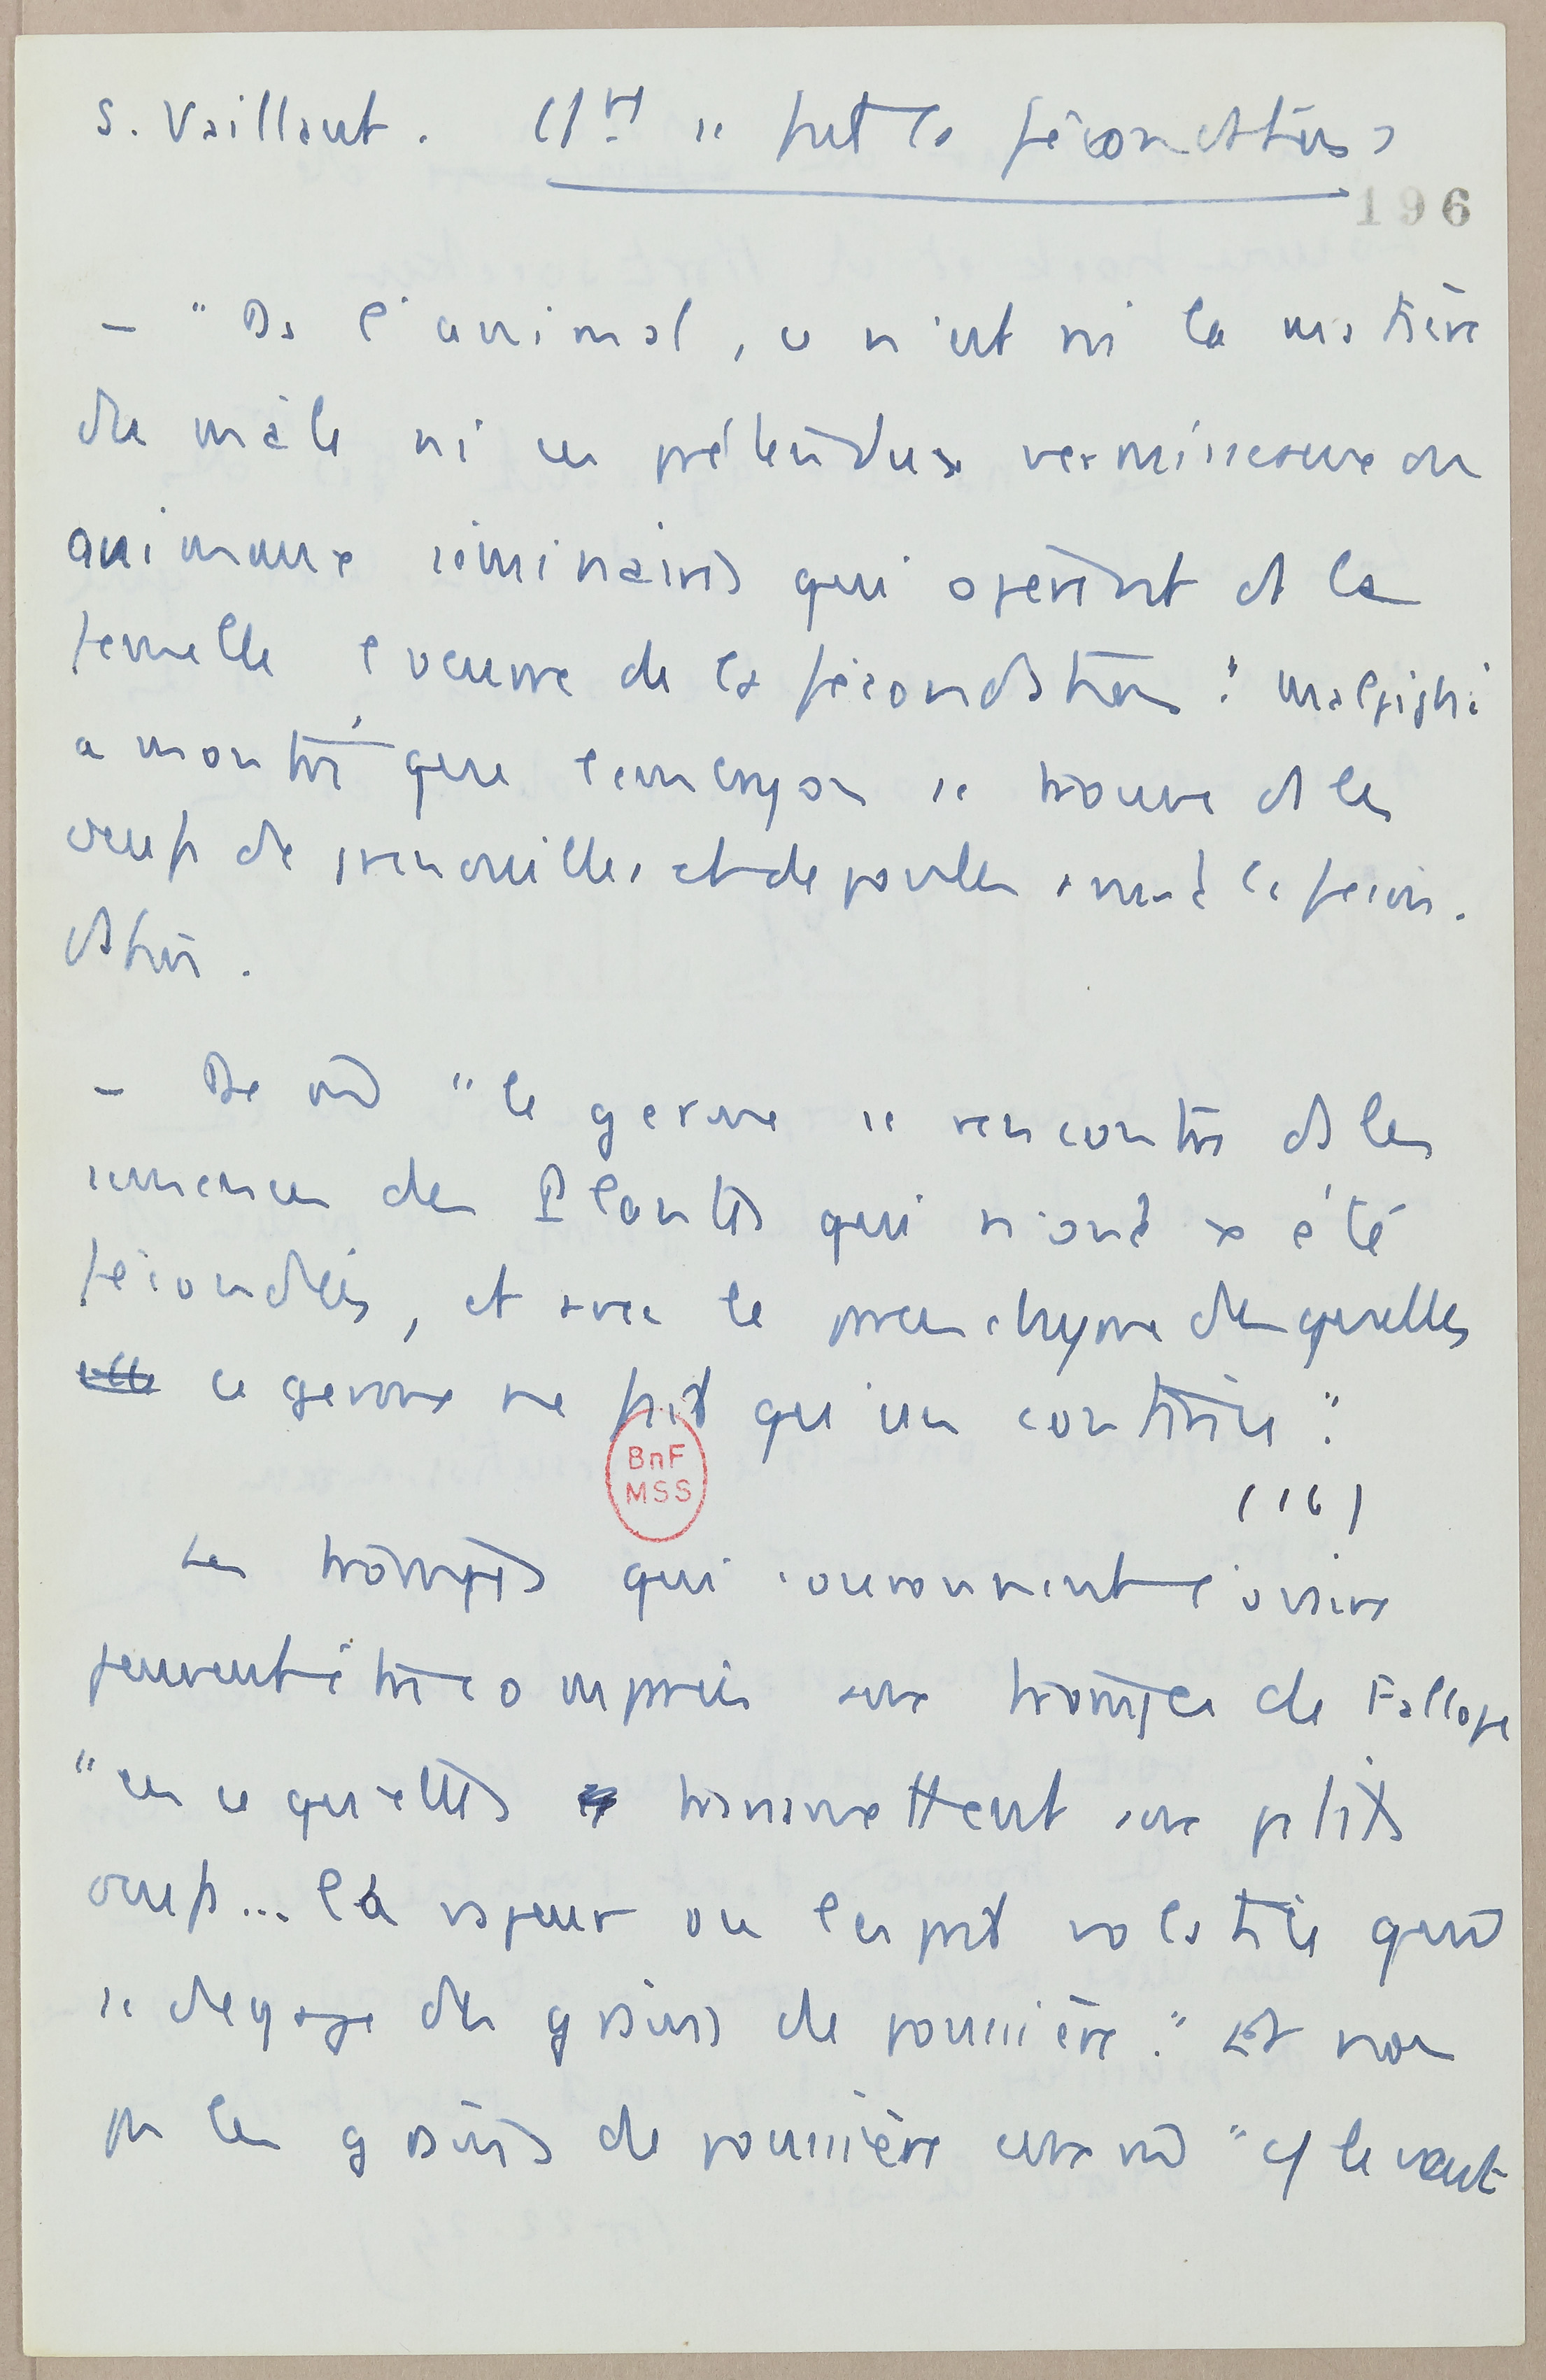 S. Vaillant. Cmt se fait la fécondation
196
– "Ds l'animal, ce n'est ni la matière
du mâle ni ces prétendus vermisseaux ou
animaux séminaires qui opèrent ds la
femelle l'oeuvre de la fécondation": Malpighi
a montré que l'embryon se trouve ds les
oeufs de grenouilles et de poules avant la fécon-
dation.
– De m̂ "le germe se rencontre ds les
semences des Plantes qui n'ont pas été
fécondées, et avec le parenchyme desquelles
ce germe ne fait qu'un continu".
(16)
Les trompes qui couronnent l'ovaire
peuvent être comparées aux trompes de Fallope
"en ce qu'elles transmettent aux petits
oeufs... la vapeur ou l'esprit volatile qui
se dégage des grains de poussière." Et non
pas les grains de poussière eux m̂ "cf le veut
BnF
MSS